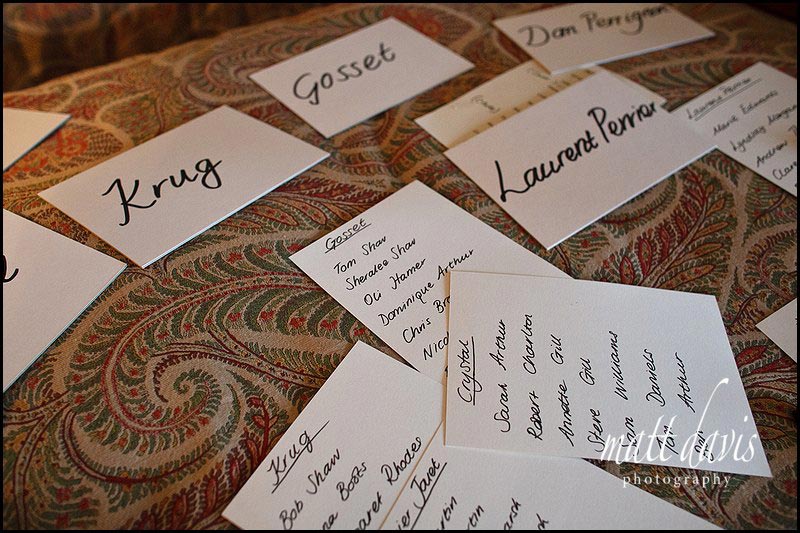 Gosset
Dom Perrignon
Krug
Laurent Perrier
Laurent Perrier
Marie Edmunds
Lyndsay
Andrew
Gosset
Tom Shaw
Sheralee Shaw
Oli Hamer
Dominique Arthur
Chris
Crystal
Sarah Arthur
Robert Charlton
Annette Gill
Steve Gill
Williams
Daniels
Arthur
Krug
Bob Shaw
Boots
Rhodes
Janet
matt davis
photography